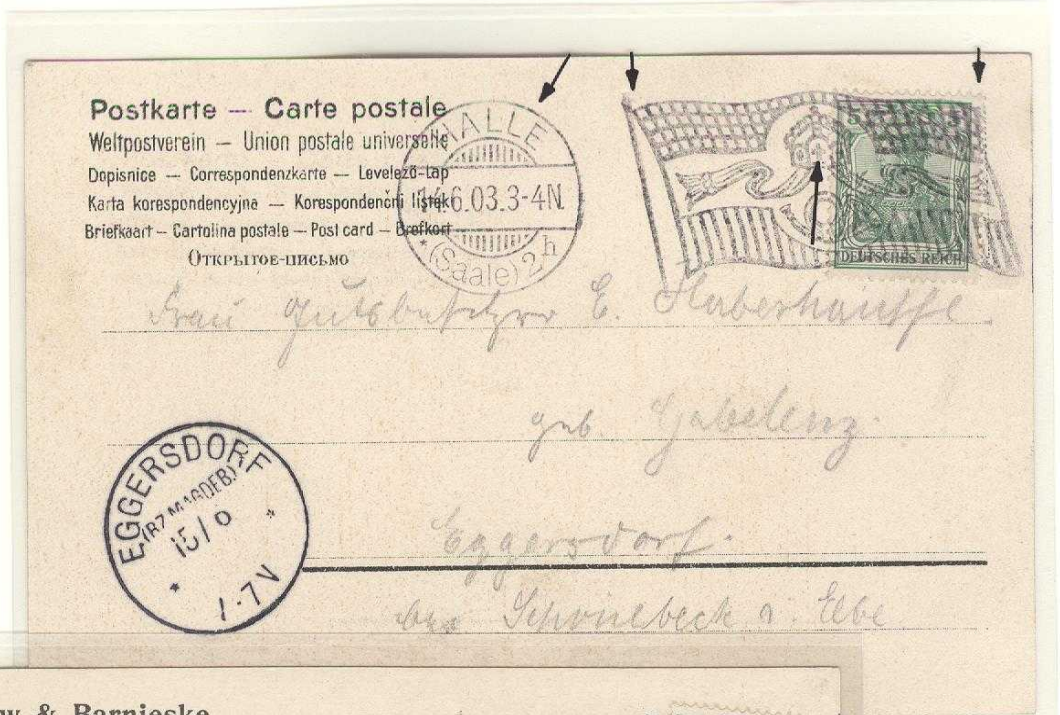 Postkarte — Carte postale
Weltpostverein — Union postale universelle
Dopisnice — Correspondenzkarte — Levelező-Lap
Karta korespondencyjna — Korespondenční lístek
Briefkaart — Cartolina postale — Post card — Brefkort
Открытое-письмо
HALLE
14.6.03.3-4N.
* (Saale) 2 h
5 5
DEUTSCHES REICH
Frau Gutsbesitzer E. Haberhauffe
geb. Gabelenz.
Eggersdorf.
bei Schönebeck a. Elbe
EGGERSDORF
(BZ.MAGDEB.)
15/6
* *
7-7V
& Barnieske